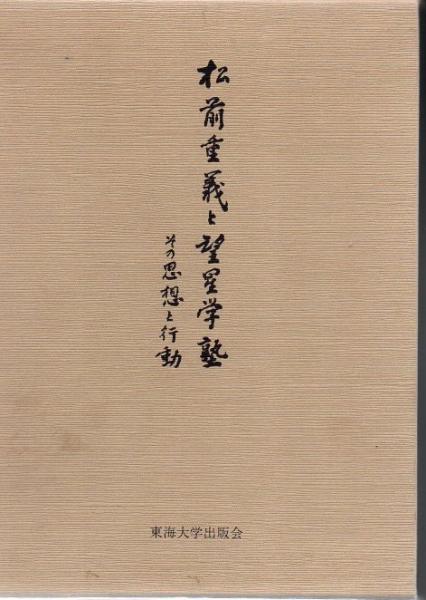 松前重義と望星学塾
その思想と行動
東海大学出版会